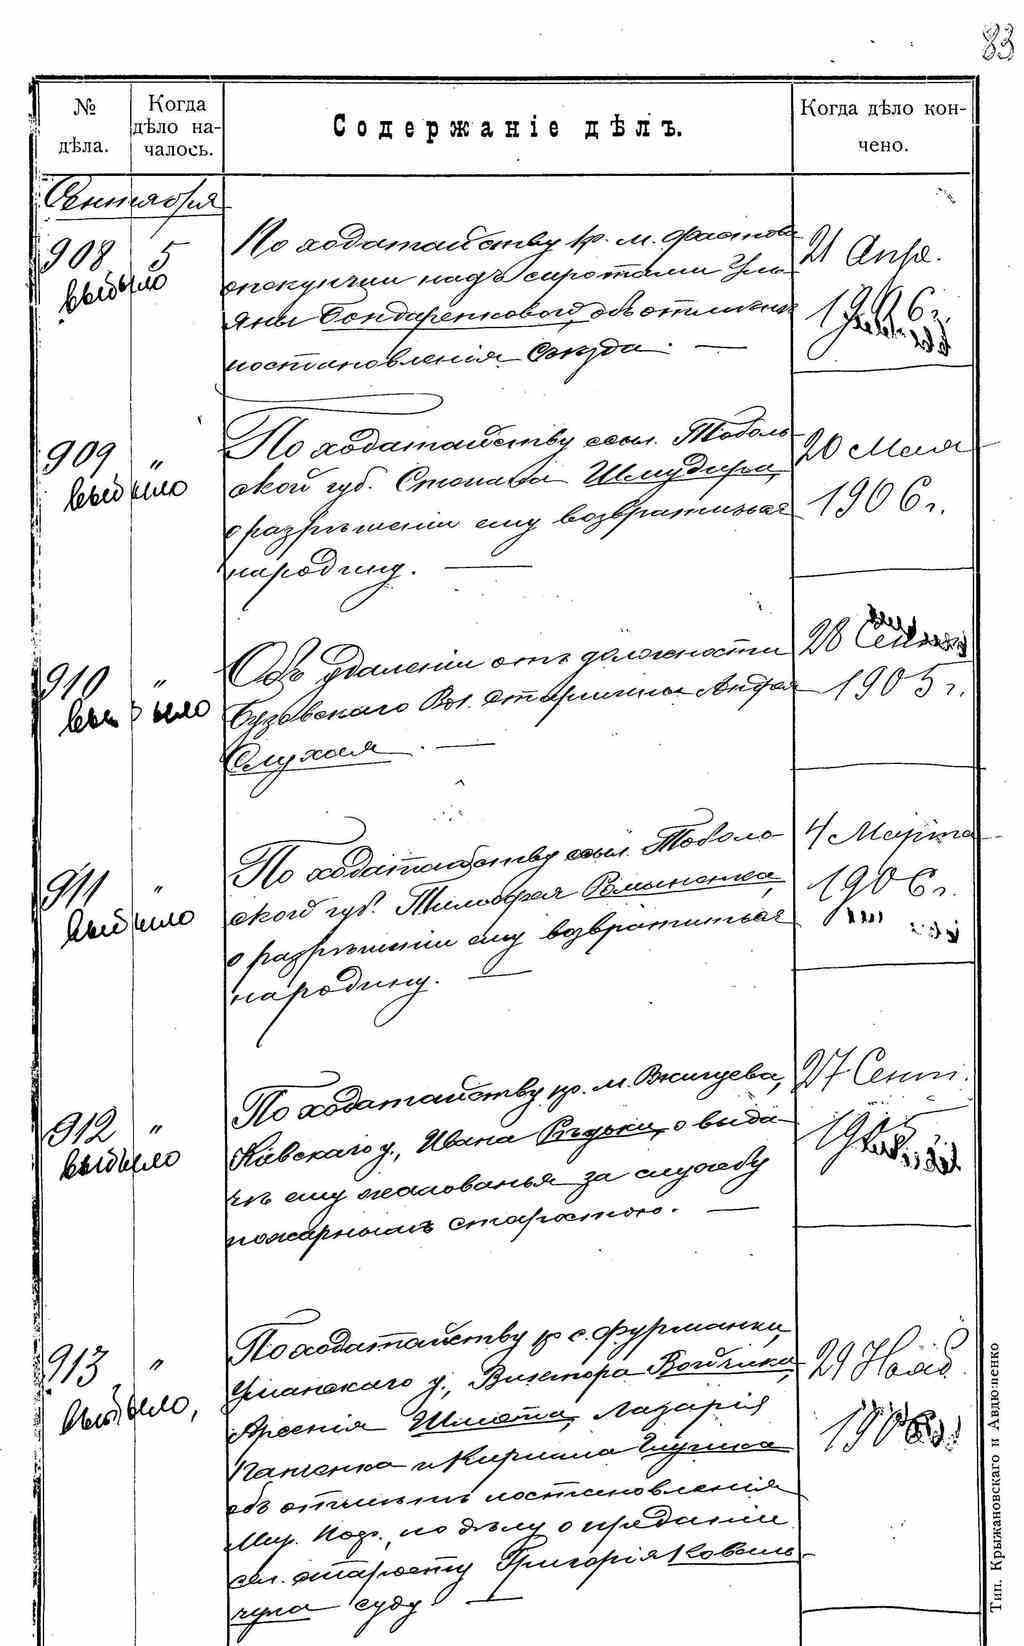 83
№ дѣла.
Когда дѣло началось.
Содержаніе дѣлъ.
Когда дѣло кончено.
Сентября
908 5
выбыло
По ходатайству кр. м. Фастова
опекунши надъ сиротами Уль-
яны Бондаренковой, объ отмѣнѣ
постановленія Съѣзда. —
21 Апр.
1906 г.
909 „
выбыло
По ходатайству ссыл. Тоболь-
ской губ. Степана
о разрѣшеніи ему возвратиться
на родину. —
20 Мая
1906 г.
910 „
выбыло
Объ удаленіи отъ должности
Бузовскаго Вол. старшины
Слухая. —
28 Сент.
1905 г.
911 „
выбыло
По ходатайству ссыл. Тоболь-
ской губ. Тимофея Романенка,
о разрѣшеніи ему возвратиться
на родину. —
4 Марта
1906 г.
912 „
выбыло
По ходатайству кр. м.
Кіевскаго у., Ивана Рѣдьки, о выда-
чѣ ему жалованья за службу
пожарнымъ старостою. —
27 Сент.
1905
913 „
выбыло,
По ходатайству кр. с. Фурманки,
Уманскаго у., Виктора
Арсенія Шмата, Лазарія
и Кирилла
объ отмѣнѣ постановленія
Мир. Поср., по дѣлу о преданіи
сел. старосту Григорія Коваль-
чука суду —
29 Нояб.
190
Тип. Крыжановскаго и Авдюшенко